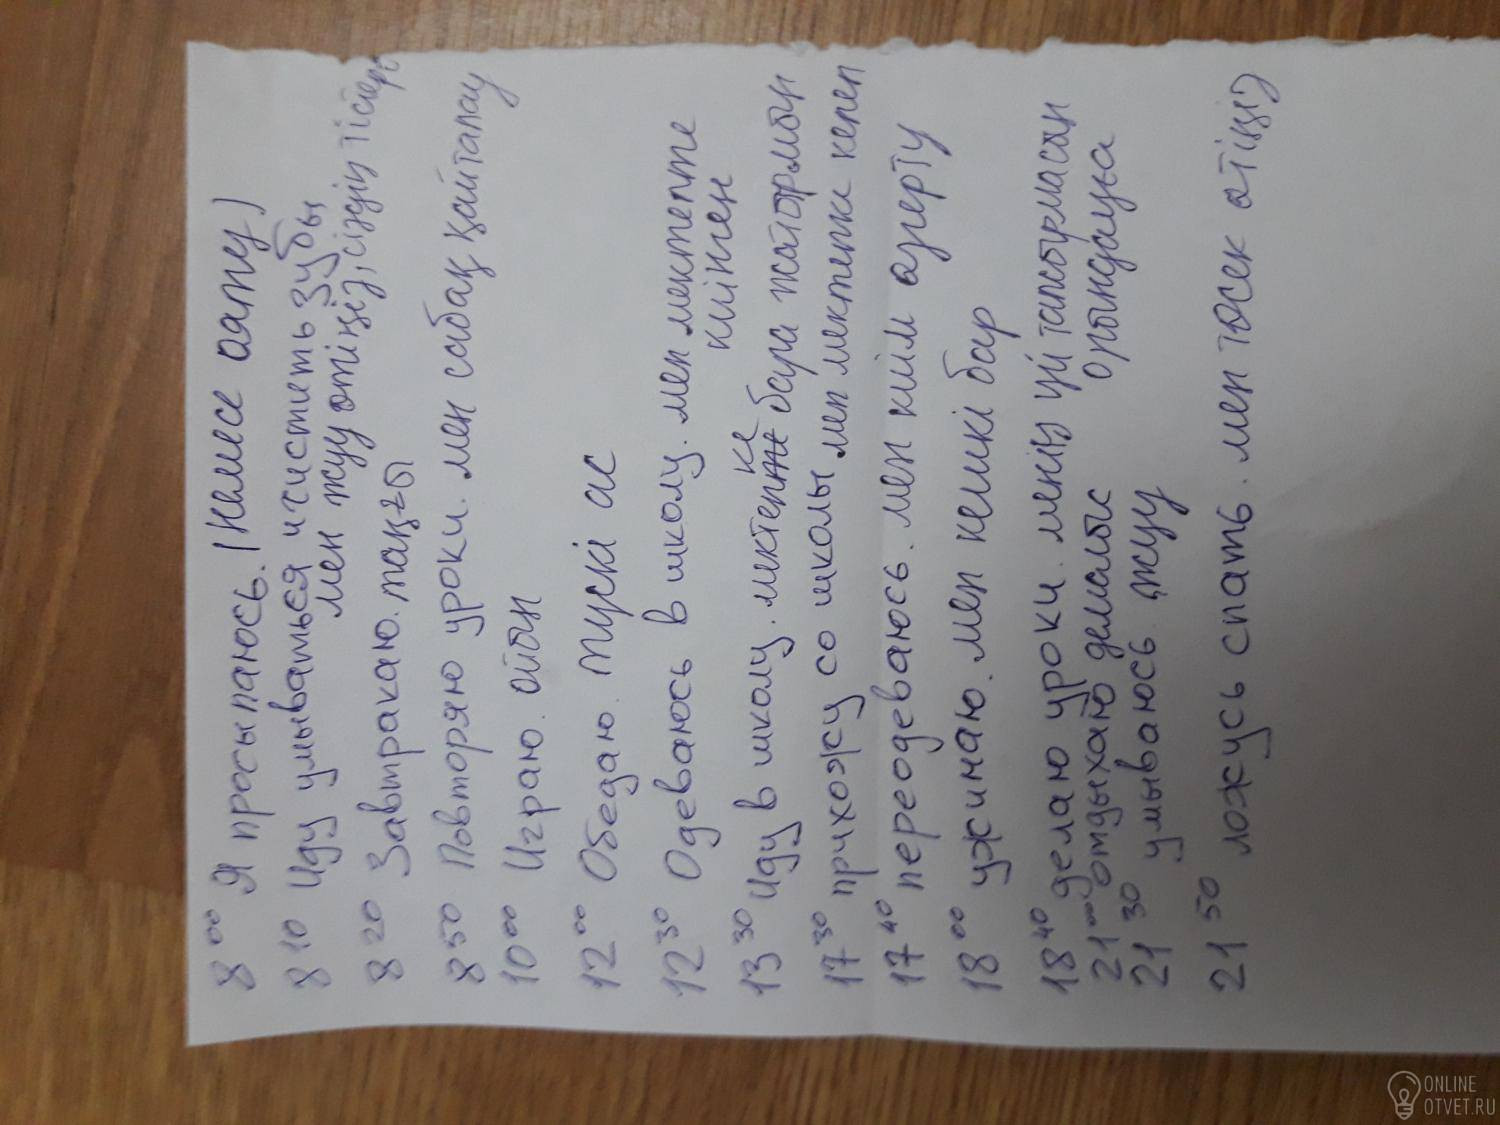 8 00 Я просыпаюсь. (Немесе аялу)
8 10 Иду умываться и чистить зубы,
мен жуу өтіңіз, сіздің тістер
8 20 Завтракаю. таңғы
8 50 Повторяю уроки. мен сабақ қайталау
10 00 Играю. ойын
12 00 Обедаю. түскі ас
12 30 Одеваюсь в школу. мен мектепте
киінген
13 30 Иду в школу. мектепке бара жатырмын
17 30 прихожу со школы мен мектепке келеп
17 40 переодеваюсь. мен киім өзгерту
18 00 ужинаю. мен кешкі бар
18 40 делаю уроки. менің үй тапсырмасын
орындауға
21 00 отдыхаю демалыс
21 30 умываюсь. жуу
21 50 ложусь спать. мен төсек өтіңіз
ONLINE
OTVET.RU